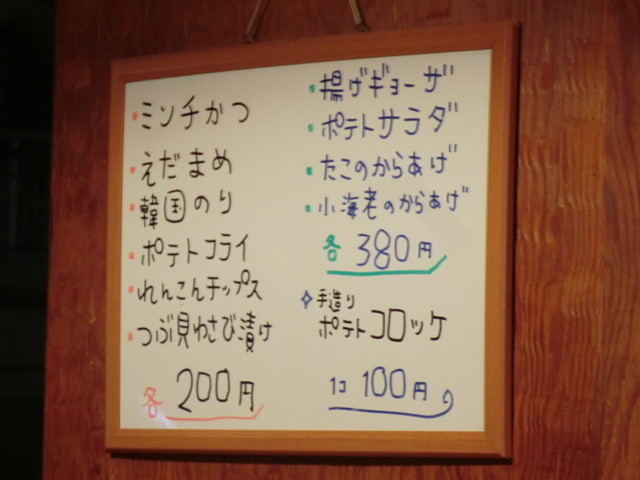 ミンチかつ
えだまめ
韓国のり
ポテトフライ
れんこんチップス
つぶ貝わさび漬け
各 200円
揚げギョーザ
ポテトサラダ
たこのからあげ
小海老のからあげ
各 380円
手造り
ポテトコロッケ
1コ 100円